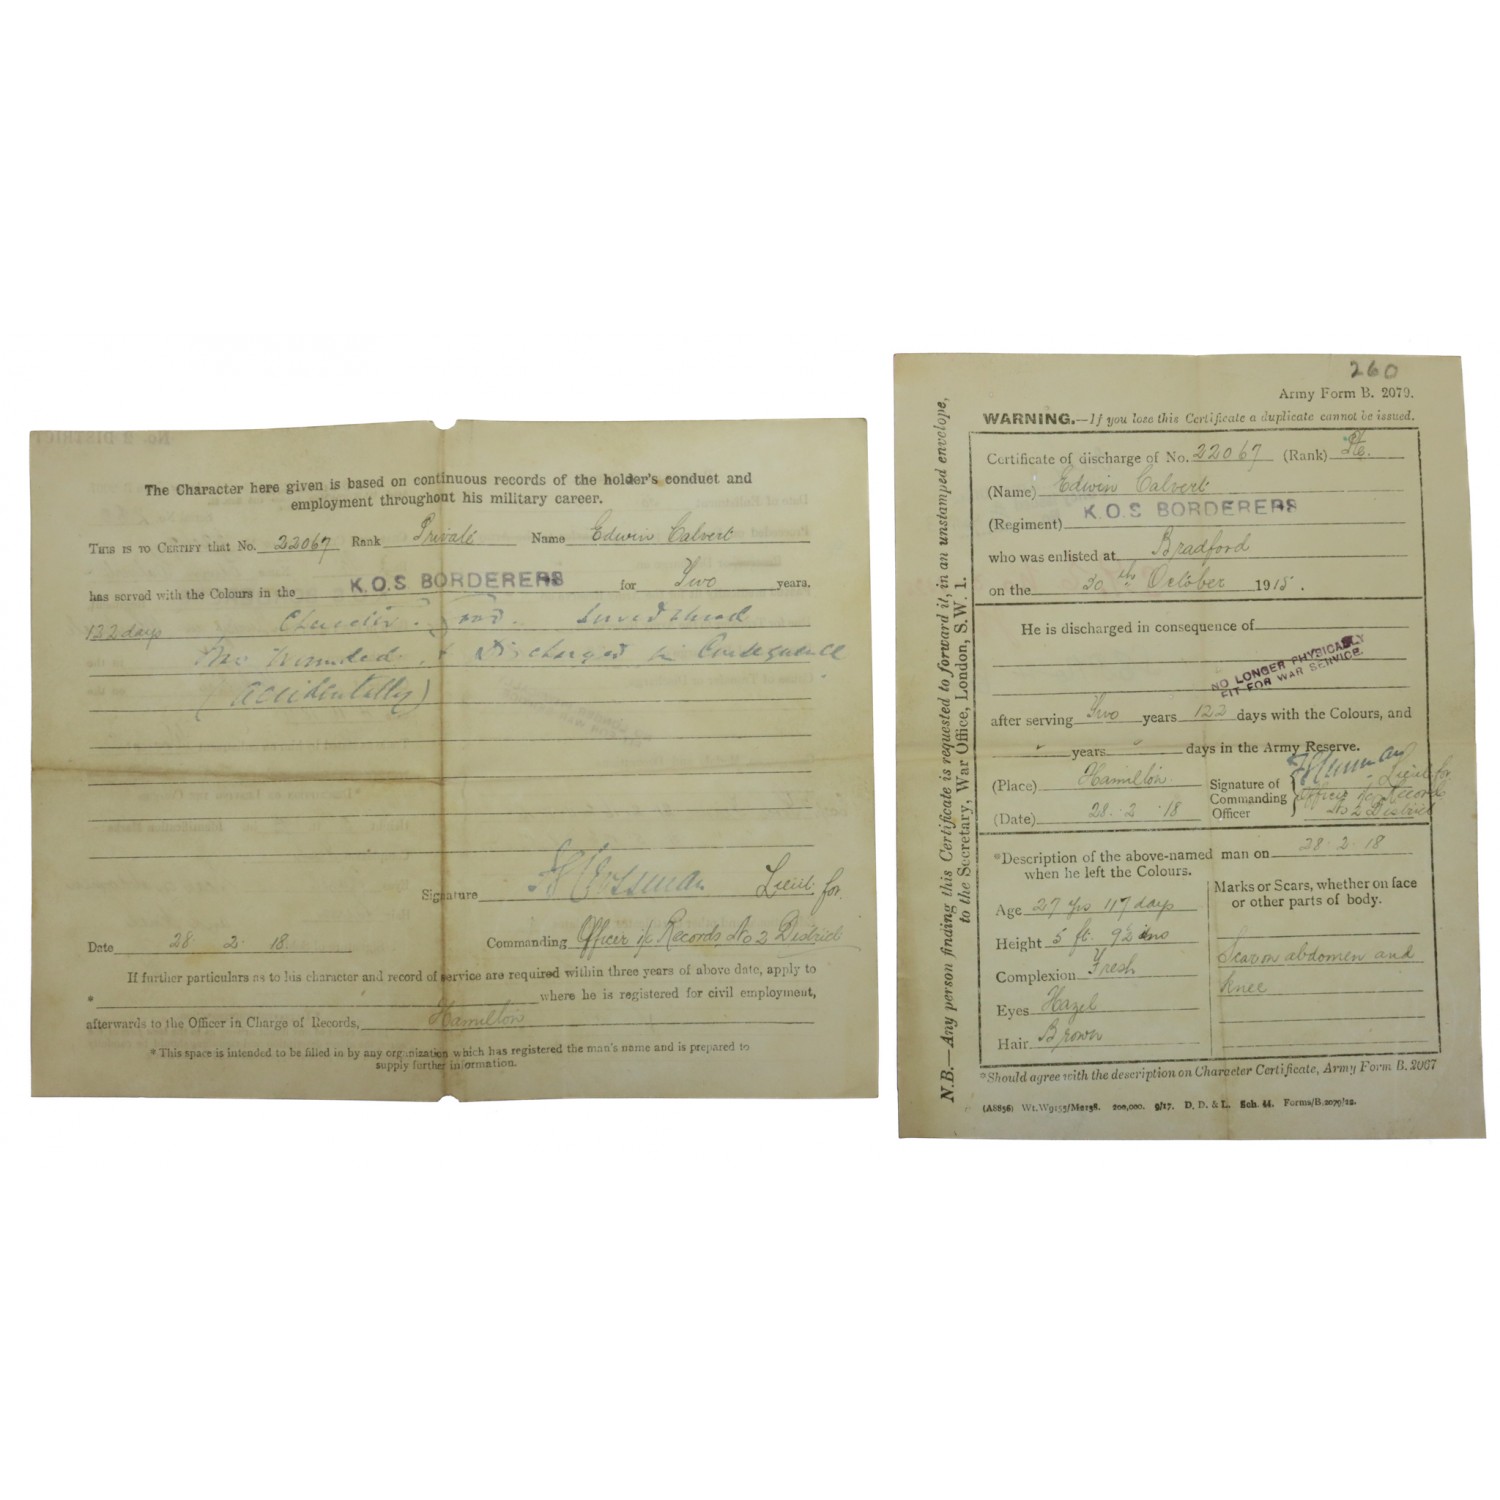 No. 2 DISTRICT
The Character here given is based on continuous records of the holder's conduct and
employment throughout his military career.
THIS IS TO CERTIFY that No. 22067 Rank Private Name Edwin Calvert
has served with the Colours in the K.O.S BORDERERS for Two years.
122 days
wounded & Discharged in Consequence
(accidentally)
Signature Lieut. for
Date 28 2 18. Commanding Officer i/c Records No 2 District
If further particulars as to his character and record of service are required within three years of above date, apply to
* where he is registered for civil employment,
afterwards to the Officer in Charge of Records, Hamilton
* This space is intended to be filled in by any organization which has registered the man's name and is prepared to
supply further information.
260
Army Form B. 2079.
WARNING.—If you lose this Certificate a duplicate cannot be issued.
Certificate of discharge of No. 22067 (Rank) Pte.
(Name) Edwin Calvert
(Regiment) K.O.S BORDERERS
who was enlisted at Bradford
on the 20th October 1915.
He is discharged in consequence of
NO LONGER PHYSICALLY
FIT FOR WAR SERVICE.
after serving Two years 122 days with the Colours, and
years days in the Army Reserve.
(Place) Hamilton
Signature of Commanding Officer Lieut for
Officer i/c Records
No 2 District
(Date) 28 . 2 . 18
*Description of the above-named man on 28 . 2 . 18
when he left the Colours.
Age 27 yrs 117 days
Height 5 ft. 9½ ins
Complexion Fresh
Eyes Hazel
Hair Brown
Marks or Scars, whether on face
or other parts of body.
Scar on abdomen and
knee
*Should agree with the description on Character Certificate, Army Form B. 2067
(A8856) Wt. W9153/M2138. 200,000. 9/17. D. D. & L. Sch. 44. Forms/B.2079/12.
N.B.—Any person finding this Certificate is requested to forward it, in an unstamped envelope,
to the Secretary, War Office, London, S.W. 1.